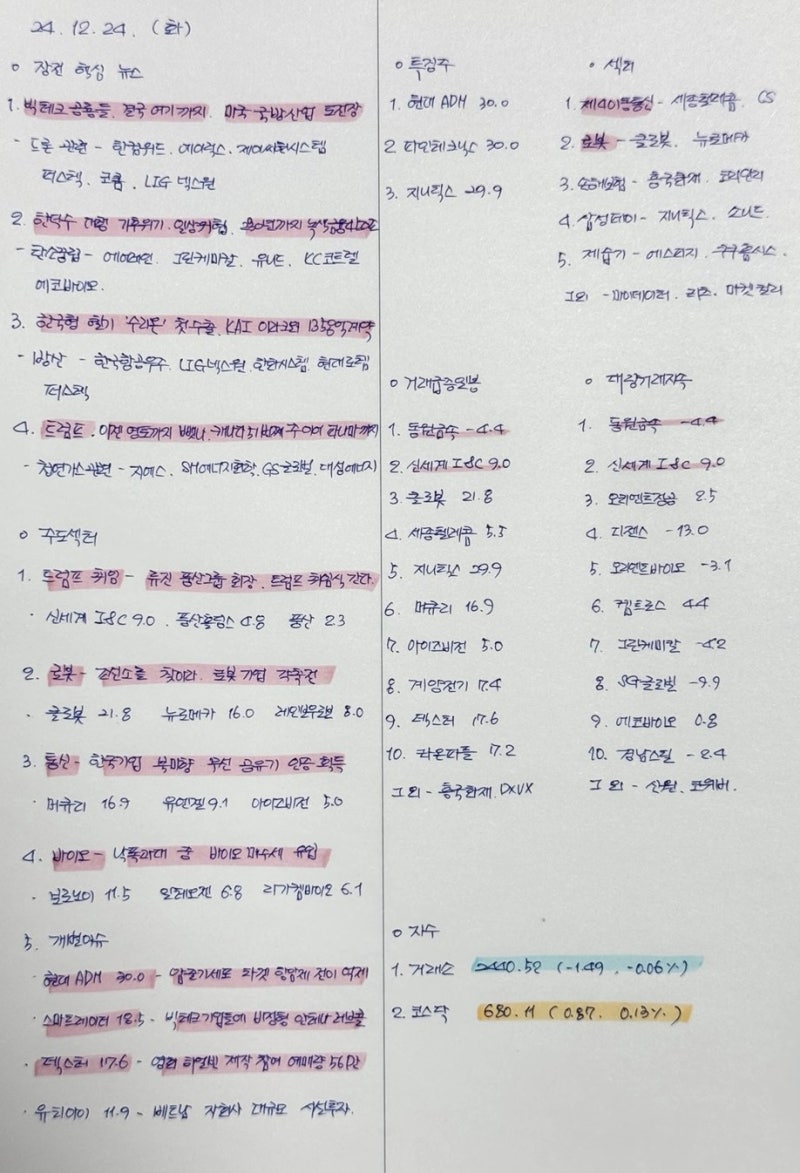 24. 12. 24. (화)
○ 장전 핵심 뉴스
1. 빅테크 공룡들, 결국 여기까지. 미국 국방산업 도전장
- 드론 관련 - 한컴위드. 에이럭스. 제이씨현시스템
퍼스텍. 코콤. LIG넥스원
2. 한덕수 대행 기후위기. 일상위협.
- 탄소중립 - 에어레인. 그린케미칼. 유니드. KC코트렐
에코바이오.
3. 한국형 헬기 '수리온' 첫 수출. KAI 이라크와 1358억 계약
- 방산 - 한국항공우주. LIG넥스원. 한화시스템. 현대로템
퍼스텍
4. 트럼프. 이젠 영토까지 뺏나. 캐나다 51번째 주 이어 파나마까지
- 천연가스 관련 - 지에스. SH에너지화학. GS글로벌. 대성에너지
○ 주도섹터
1. 트럼프 취임 - 류진 풍산그룹 회장. 트럼프 취임식 간다.
· 신세계 I&C 9.0. 풍산홀딩스 4.8 풍산 2.3
2. 로봇 - 조선소를 찾아라. 로봇기업 각축전
· 클로봇 21.8 뉴로메카 16.0 레인보우로봇 8.0
3. 통신 - 한국기업 북미향 무선 공유기 인증 획득
· 머큐리 16.9 유엔젤 9.1 아이즈비전 5.0
4. 바이오 - 낙폭과대 중 바이오 매수세 유입
· 보로노이 11.5 알테오젠 6.8 리가켐바이오 6.1
5. 개별이슈
· 현대 ADM 30.0 - 암줄기세포 타겟 항암제 전이 억제
· 스마트레이더 18.5 - 빅테크기업들에 비정형 안테나 러브콜
· 덱스터 17.6 - 영화 하얼빈 제작 참여 예매량 56만
· 유티아이 11.9 - 베트남 자회사 대규모 시설투자.
○ 특징주
1. 현대 ADM 30.0
2. 파인테크닉스 30.0
3. 지니틱스 29.9
○ 섹터
1. 제4이동통신 - 세종텔레콤. CS
2. 로봇 - 클로봇. 뉴로메카
3. 손해보험 - 흥국화재. 코리안리
4. 삼성페이 - 지니틱스.
5. 제습기 - 에스피지. 쿠쿠홈시스.
그외 - 마이데이터. 리츠. 마켓컬리
○ 거래급증일봉
1. 동원금속 -4.4
2. 신세계 I&C 9.0
3. 클로봇 21.8
4. 세종텔레콤 5.5
5. 지니틱스 29.9
6. 머큐리 16.9
7. 아이즈비전 5.0
8. 계양전기 17.4
9. 덱스터 17.6
10. 라온피플 17.2
그외 - 흥국화재. DXVX
○ 대량거래지속
1. 동원금속 -4.4
2. 신세계 I&C 9.0
3. 오리엔트정공 2.5
4. 디젠스 -13.0
5. 오리엔트바이오 -3.1
6. 켐트로스 4.4
7. 그린케미칼 -4.2
8. SG글로벌 -9.9
9. 에코바이오 0.8
10. 경남스틸 -2.4
그외 - 산월. 코위버.
○ 지수
1. 거래소 2440.52 (-1.49, -0.06%)
2. 코스닥 680.11 (0.87. 0.13%)